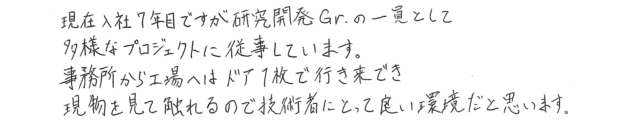 現在入社7年目ですが研究開発Gr.の一員として
多様なプロジェクトに従事しています。
事務所から工場へはドア1枚で行き来でき
現物を見て触れるので技術者にとって良い環境だと思います。